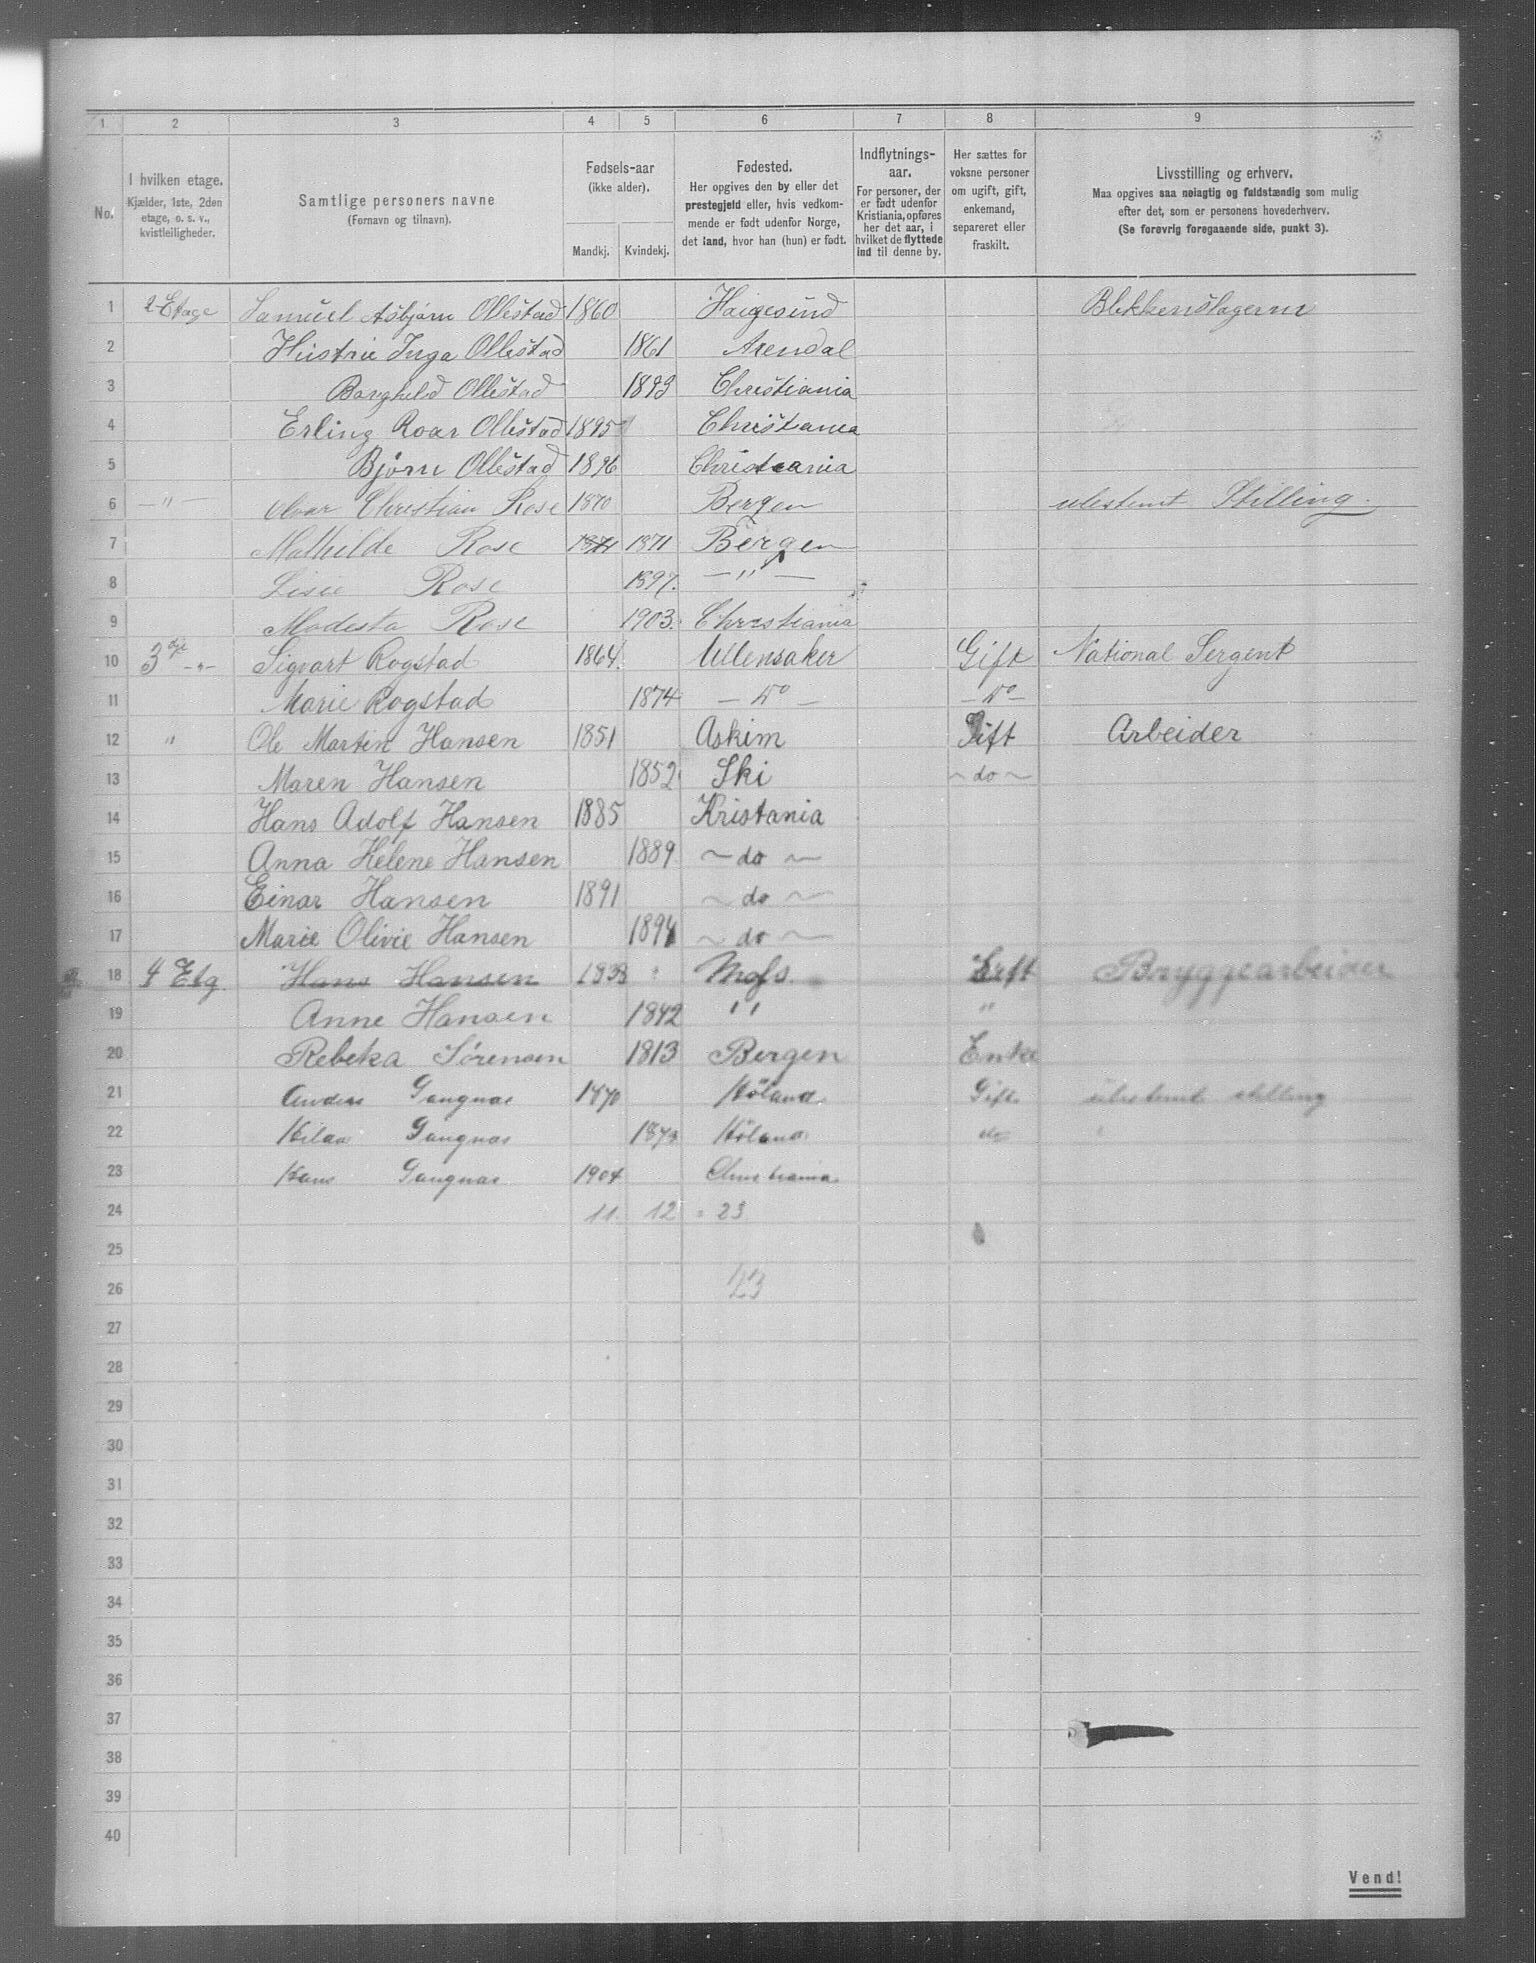 1 2 3 4 5 6 7 8 9
No.
I hvilken etage.
Kjælder, 1ste, 2den
etage, o. s. v.,
kvistleiligheder.
Samtlige personers navne
(Fornavn og tilnavn).
Fødsels-aar
(ikke alder).
Mandkj. Kvindekj.
Fødested.
Her opgives den by eller det
prestegjeld eller, hvis vedkom-
mende er født udenfor Norge,
det land, hvor han (hun) er født.
Indflytnings-
aar.
For personer, der
er født udenfor
Kristiania, opføres
her det aar, i
hvilket de flyttede
ind til denne by.
Her sættes for
voksne personer
om ugift, gift,
enkemand,
separeret eller
fraskilt.
Livsstilling og erhverv.
Maa opgives saa nøiagtig og fuldstændig som mulig
efter det, som er personens hovederhverv.
(Se forøvrig foregaaende side, punkt 3).
1 2-Etage Samuel Asbjørn Ollestad 1860 Haigesund Blikkenslagerm
2 Hustrue Inga Ollestad 1861 Arendal
3 Borghild Ollestad 1893 Christiania
4 Erling Roar Ollestad 1895 Christiania
5 Bjørn Ollestad 1896 Christiania
6 — " — Christian Rose 1870 Bergen ubestemt Stilling.
7 Mathilde Rose 1871 1871 Bergen
8 Lisie Rose 1897. — " —
9 Modesta Rose 1903. Christiania
10 3dje -"- Sigvart Rogstad 1864. Ullensaker Gift National Sergent
11 Marie Rogstad 1874 — Do — — Do —
12 " Ole Martin Hansen 1851 Askim Gift Arbeider
13 Maren Hansen 1852 Ski ~ do ~
14 Hans Adolf Hansen 1885 Kristania
15 Anna Helene Hansen 1889 ~ do ~
16 Einar Hansen 1891 ~ do ~
17 Marie Olivie Hansen 1894 ~ do ~
18 4 Etg. Hans Hansen 1838 Moss Gift Bryggearbeider
19 Anne Hansen 1842 " "
20 Rebeka Sørensen 1813 Bergen Enke
21 Anders Gangnæs 1870 Høland. Gift. ubestemt stilling
22 Gangnæs 1873 Høland do
23 Hans Gangnæs 1904 Christiania
24 11. 12 = 23
25
26 23
27
28
29
30
31
32
33
34
35
36
37
38
39
40
Vend!